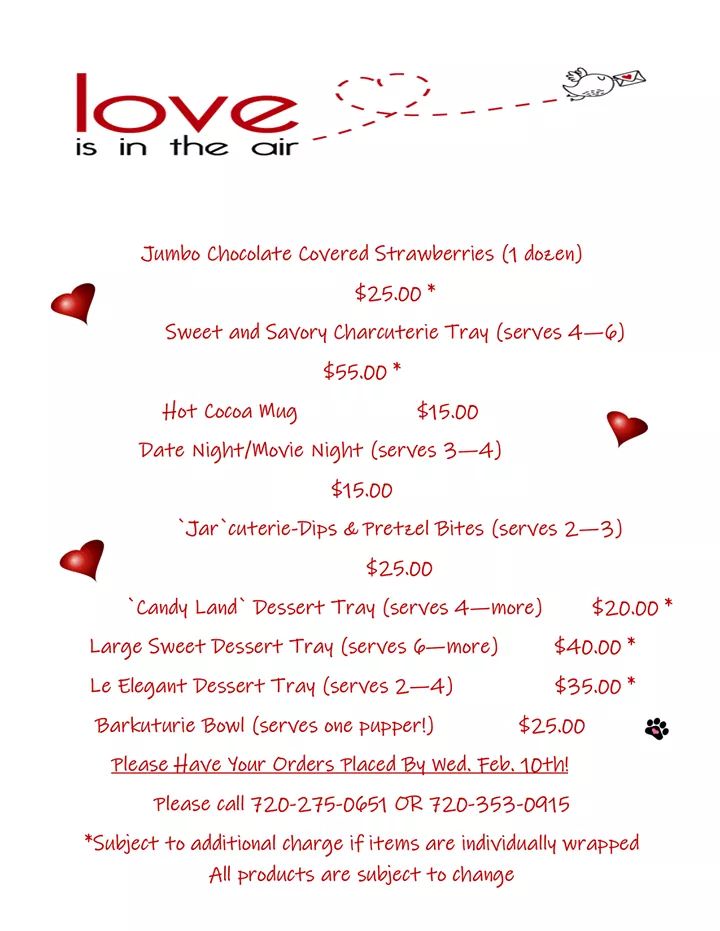 love
is in the air
Jumbo Chocolate Covered Strawberries (1 dozen)
$25.00 *
Sweet and Savory Charcuterie Tray (serves 4—6)
$55.00 *
Hot Cocoa Mug $15.00
Date Night/Movie Night (serves 3—4)
$15.00
`Jar`cuterie-Dips & Pretzel Bites (serves 2—3)
$25.00
`Candy Land` Dessert Tray (serves 4—more) $20.00 *
Large Sweet Dessert Tray (serves 6—more) $40.00 *
Le Elegant Dessert Tray (serves 2—4) $35.00 *
Barkuturie Bowl (serves one pupper!) $25.00
Please Have Your Orders Placed By Wed. Feb. 10th!
Please call 720-275-0651 OR 720-353-0915
*Subject to additional charge if items are individually wrapped
All products are subject to change